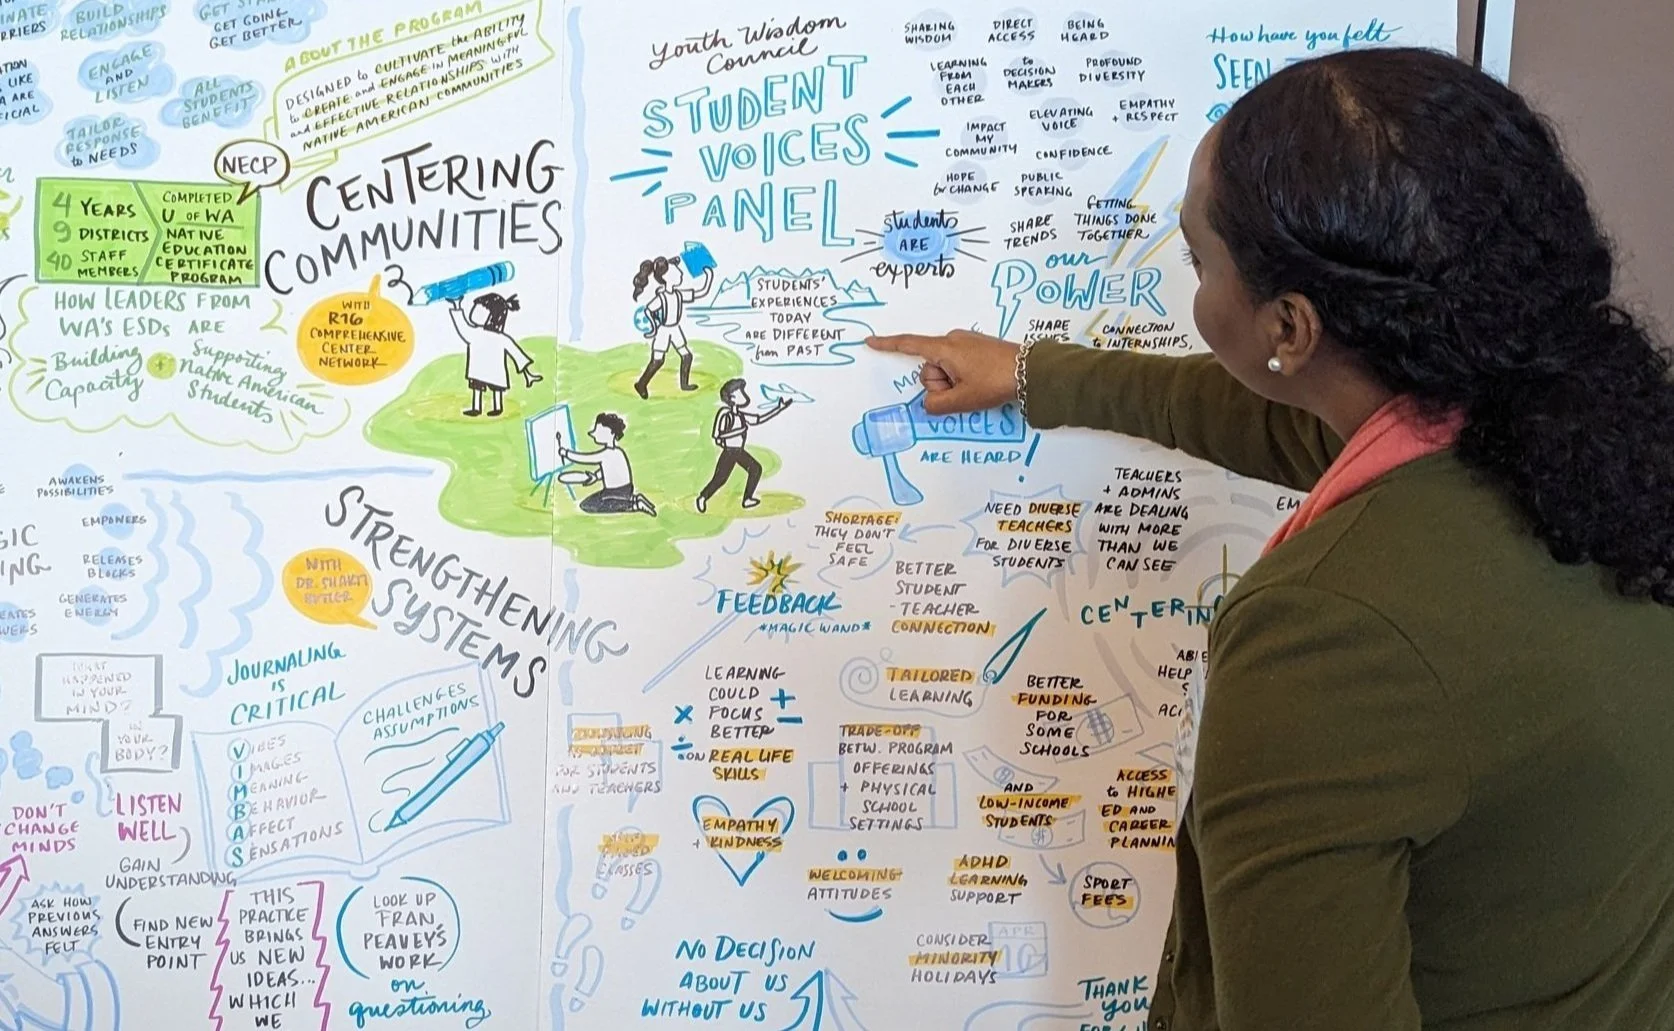 BUILD
RELATIONSHIPS
GET GOING
GET BETTER
ENGAGE
AND
LISTEN
ALL
STUDENTS
BENEFIT
TAILOR
RESPONSE
to NEEDS
LIKE
ARE
ABOUT THE PROGRAM
DESIGNED to CULTIVATE the ABILITY
to CREATE and ENGAGE IN MEANINGFUL
and EFFECTIVE RELATIONSHIPS WITH
NATIVE AMERICAN COMMUNITIES
NECP
4 YEARS
9 DISTRICTS
40 STAFF
MEMBERS
COMPLETED
U OF WA
NATIVE
EDUCATION
CERTIFICATE
PROGRAM
CENTERING
COMMUNITIES
HOW LEADERS FROM
WA'S ESDs ARE
Building
Capacity
+
Supporting
Native American
Students
WITH
R16
COMPREHENSIVE
CENTER
NETWORK
AWAKENS
POSSIBILITIES
EMPOWERS
RELEASES
BLOCKS
GENERATES
ENERGY
STRENGTHENING
SYSTEMS
WITH
DR. SHAKTI
BUTLER
WHAT
HAPPENED
IN YOUR
MIND?
IN
YOUR
BODY?
JOURNALING
IS
CRITICAL
VIBES
IMAGES
MEANING
BEHAVIOR
AFFECT
SENSATIONS
CHALLENGES
ASSUMPTIONS
DON'T
CHANGE
MINDS
LISTEN
WELL
GAIN
UNDERSTANDING
ASK HOW
PREVIOUS
ANSWERS
FELT
FIND NEW
ENTRY
POINT
THIS
PRACTICE
BRINGS
US NEW
IDEAS...
WHICH
WE
LOOK UP
FRAN
PEAVEY'S
WORK
on
questioning
Youth Wisdom
Council
STUDENT
VOICES
PANEL
SHARING
WISDOM
DIRECT
ACCESS
to
DECISION
MAKERS
BEING
HEARD
LEARNING
FROM
EACH
OTHER
PROFOUND
DIVERSITY
IMPACT
MY
COMMUNITY
ELEVATING
VOICE
EMPATHY
+ RESPECT
CONFIDENCE
HOPE
for CHANGE
PUBLIC
SPEAKING
SHARE
TRENDS
GETTING
THINGS DONE
TOGETHER
students
ARE
experts
STUDENTS'
EXPERIENCES
TODAY
ARE DIFFERENT
from PAST
our
POWER
SHARE
CONNECTION
to INTERNSHIPS,
VOICES
ARE HEARD!
How have you felt
SEEN
SHORTAGE:
THEY DON'T
FEEL
SAFE
NEED DIVERSE
TEACHERS
FOR DIVERSE
STUDENTS
TEACHERS
+ ADMINS
ARE DEALING
WITH MORE
THAN WE
CAN SEE
FEEDBACK
*MAGIC WAND*
BETTER
STUDENT
- TEACHER
CONNECTION
CENTERIN
LEARNING
COULD
FOCUS
BETTER
ON REAL LIFE
SKILLS
TAILORED
LEARNING
BETTER
FUNDING
FOR
SOME
SCHOOLS
HELP
FOR STUDENTS
AND TEACHERS
CLASSES
TRADE-OFF
BETW. PROGRAM
OFFERINGS
+ PHYSICAL
SCHOOL
SETTINGS
AND
LOW-INCOME
STUDENTS
ACCESS
to HIGHE
ED AND
CAREER
PLANNIN
EMPATHY
+ KINDNESS
WELCOMING
ATTITUDES
ADHD
LEARNING
SUPPORT
SPORT
FEES
CONSIDER
MINORITY
HOLIDAYS
APR
10
NO DECISION
ABOUT US
WITHOUT US
THANK
you